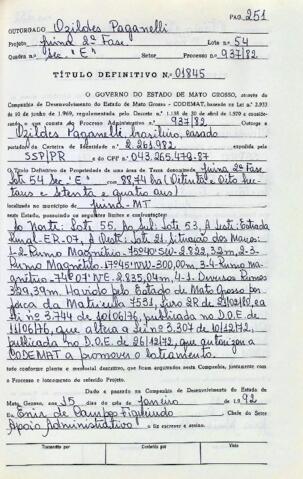 PAG. 251
OUTORGADO Ozildes Paganelli
Projeto Juina 2ª Fase Lote n.o 54
Quadra n.o Sec "E" Setor Processo 937/82
TÍTULO DEFINITIVO N.o 01845
O GOVERNO DO ESTADO DE MATO GROSSO, através da
Companhia de Desenvolvimento do Estado de Mato Grosso - CODEMAT, baseado na Lei n.o
de 10 de junho de 1969, regulamentada pelo Decreto n.o 1.138 de 30 de abril de 1970 e considerando
o que consta do Processo Administrativo n.o 937/82 Outorga a
Ozildes Paganelli, brasileiro, casado
portador da Carteira de Identidade n.o 2.261.982 expedida pela
SSP/PR e do CPF n.o 043.265.479-87
o Título Definitivo de Propriedade de uma área de Terra denominada Juina 2ª Fase
Lote 54 Sec "E" com 88,74 ha (Oitenta e Oito hec-
tares e Setenta e quatro ares)
localizada no município de Juina-MT
neste Estado, possuindo os seguintes limites e confrontações:
Ao Norte: Lote 55. Ao Sul: Lote 53, A Leste: Estrada
Rural-ER-07, A Oeste: Lote 21. Situação dos Marcos:
1-2-Rumo Magnético-
Rumo Magnético-
gnético-
329,39m. Havido pelo Estado de Mato Grosso por
força da Matricula 7531, Livro 2R de 21/02/80,
Lei nº 3.744 de 10/06/76, publicada no D.O.E. de
11/06/76, que altera a Lei nº 3.307 de 10/12/72,
publicada no D.O.E. de 26/12/72, que autorizou a
CODEMAT a promover o loteamento.
tudo conforme planta e memorial descritivo, que ficam arquivados nesta Companhia, juntamente com
o Processo e loteamento do referido Projeto.
Dado e passado na Companhia de Desenvolvimento do Estado de
Mato Grosso, aos 15 dias do mês de Janeiro de 19 92
Eu Enir de Campo Figueiredo Chefe do Setor
Apoio Administrativo o fiz escrever e assino.
Transcrito por Conferido por Visto